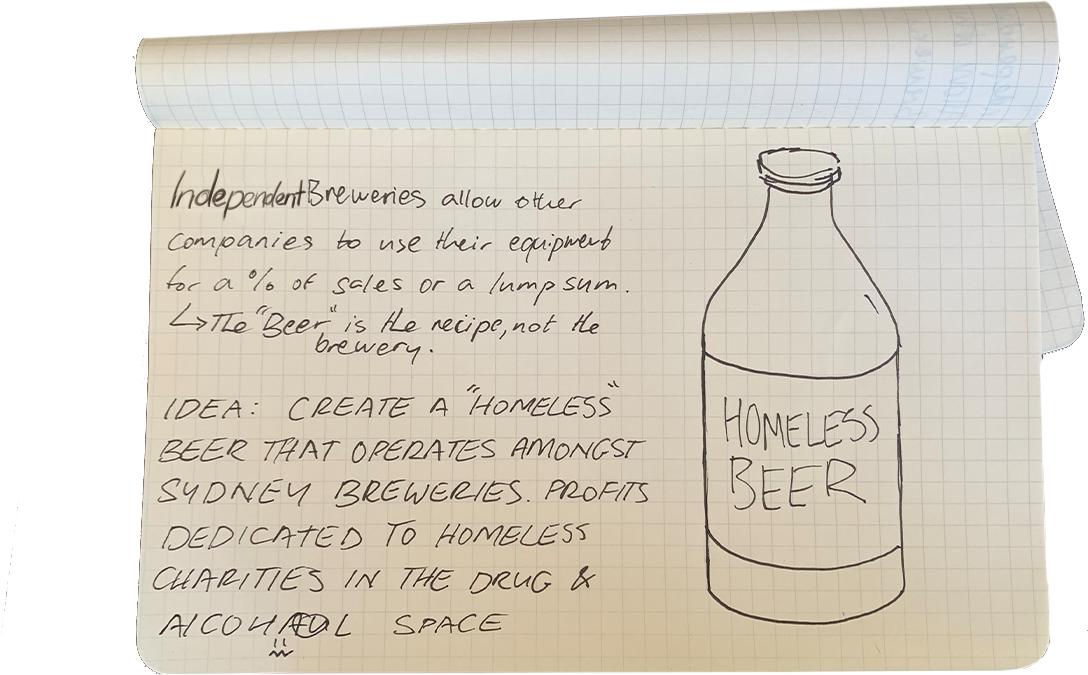 Independent Breweries allow other
companies to use their equipment
for a % of sales or a lump sum.
↳ The "Beer" is the recipe, not the
brewery.
IDEA: CREATE A "HOMELESS"
BEER THAT OPERATES AMONGST
SYDNEY BREWERIES. PROFITS
DEDICATED TO HOMELESS
CHARITIES IN THE DRUG &
SPACE
HOMELESS
BEER